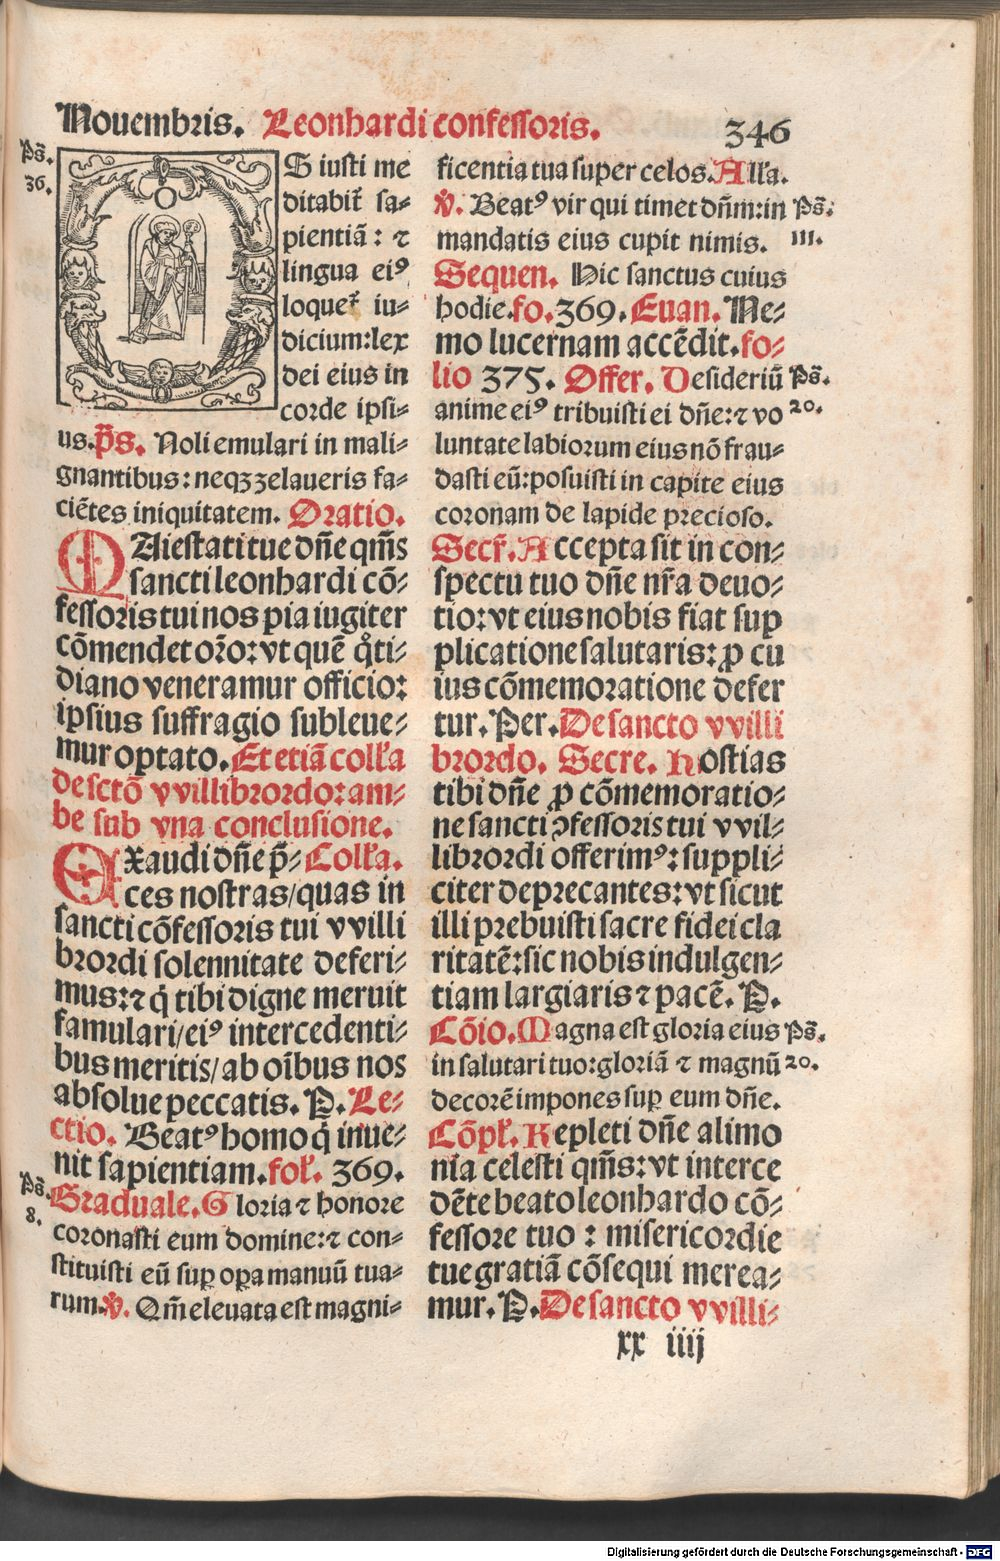 Nouembris. Leonhardi confessoris. 346
Ps̄.
36.
OS iusti me
ditabit̃ sa-
pientiã: ⁊ 
lingua ei⁹
loquet̃ iu-
dicium: lex
dei eius in
corde ipsi-
us. p̄s. Noli emulari in mali-
gnantibus: neqꝫ zelaueris fa-
ciẽtes iniquitatem. Oratio.
MAiestati tue dñe qm̃s
sancti leonhardi cõ-
fessoris tui nos pia iugiter
cõmendet or̃o: vt quẽ q̊ti-
diano veneramur officio:
ipsius suffragio subleue-
mur optato. Et etiã colła
de sctõ vvillibrordo: am-
be sub vna conclusione.
EXaudi dñe p̃- Colła.
ces nostras/quas in
sancti cõfessoris tui vvilli
brordi solennitate deferi-
mus: ⁊ q̇ tibi digne meruit
famulari/ei⁹ intercedenti-
bus meritis/ab oĩbus nos
absolue peccatis. P. Le-
ctio. Beat⁹ homo q̇ inue-
nit sapientiam. foł. 369.
Ps̄.
8.
Graduale. Gloria ⁊ honore
coronasti eum domine: ⁊ con-
stituisti eũ sup̲ op̲a manuũ tua-
rum. ℣. Qm̃ eleuata est magni-
ficentia tua super celos. Ałła.
℣. Beat⁹ vir qui timet dñm: in Ps̄.
mandatis eius cupit nimis. III.
Sequen. Hic sanctus cuius
hodie. fo. 369. Euan. Ne-
mo lucernam accẽdit. fo-
lio 375. Offer. Desideriũ Ps̄.
anime ei⁹ tribuisti ei dñe: ⁊ vo 20.
luntate labiorum eius nõ frau-
dasti eũ: posuisti in capite eius
coronam de lapide precioso.
Secr̃. Accepta sit in con-
spectu tuo dñe nr̃a deuo-
tio: vt eius nobis fiat sup
plicatione salutaris: ꝓ cu
ius cõmemoratione defer
tur. Per. De sancto vvilli
brordo. Secre. Hostias
tibi dñe ꝓ cõmemoratio-
ne sancti ꝯfessoris tui vvil-
librordi offerim⁹: suppli-
citer deprecantes: vt sicut
illi prebuisti sacre fidei cla
ritatẽ: sic nobis indulgen-
tiam largiaris ⁊ pacẽ. P.
Cõio. Magna est gloria eius Ps̄.
in salutari tuo: gloriã ⁊ magnũ 20.
decorẽ impones sup̲ eum dñe.
Cõpł. Repleti dñe alimo
nia celesti qm̃s: vt interce
dẽte beato leonhardo cõ-
fessore tuo : misericordie
tue gratiã cõsequi merea-
mur. P. De sancto vvilli-
xx iiij
Digitalisierung gefördert durch die Deutsche Forschungsgemeinschaft - DFG